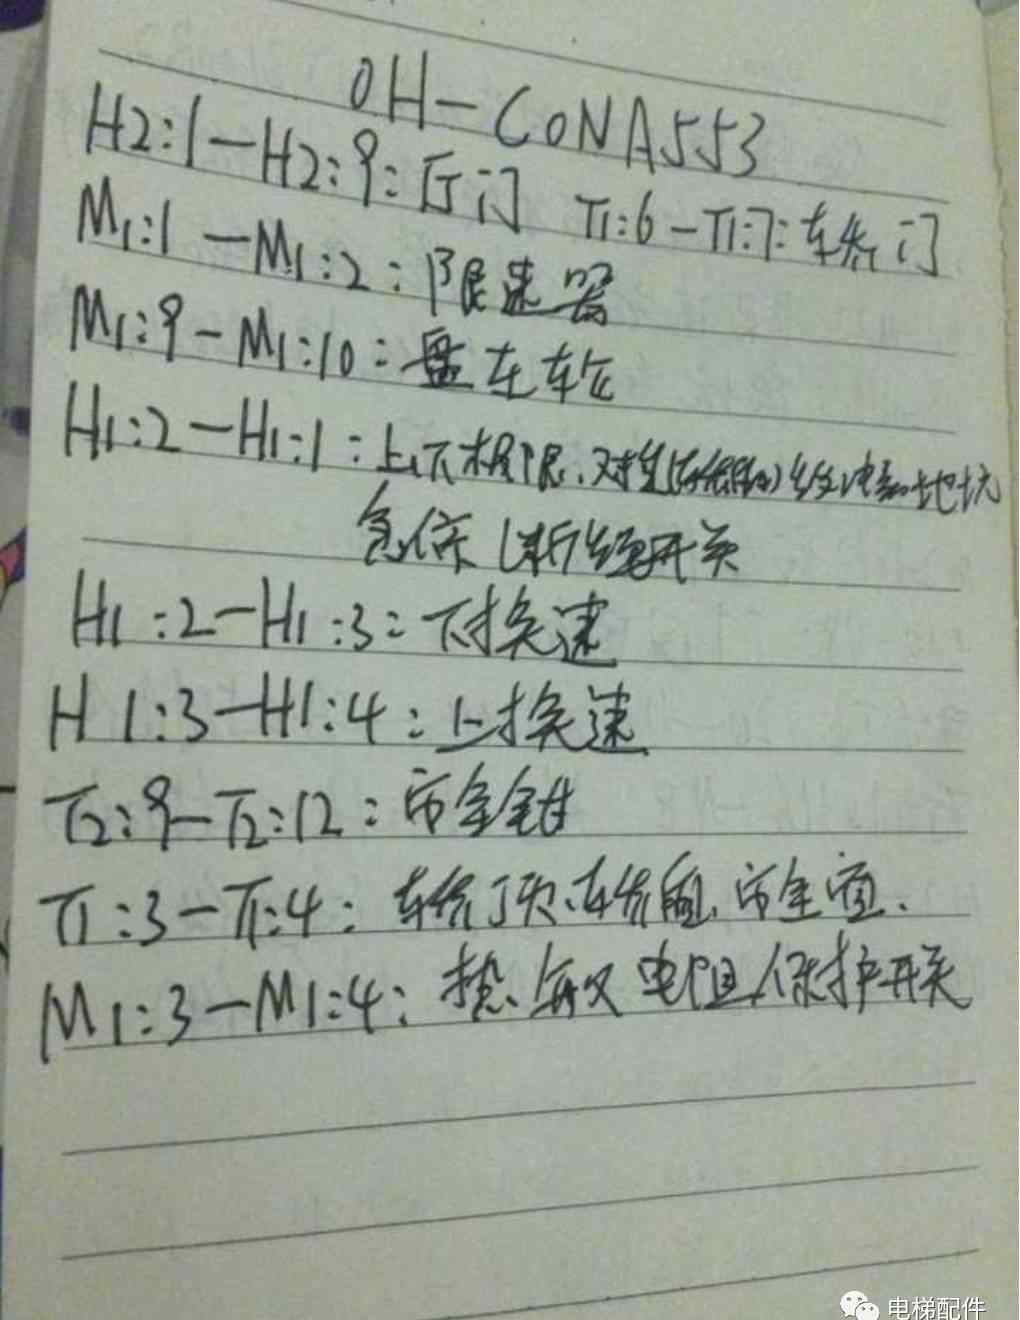 OH-CONA553
H2:1-H2:9:厅门 T1:6-T1:7:车轿门
M1:1-M1:2:限速器
M1:9-M1:10:盘车轮
H1:2-H1:1:上下极限、对重(轿厢)缓冲和地坑
急停 断绳开关
H1:2-H1:3:下换速
H1:3-H1:4:上换速
T2:9-T2:12:安全钳
T1:3-T1:4:轿顶、轿厢、安全窗.
M1:3-M1:4:热敏电阻保护开关
电梯配件